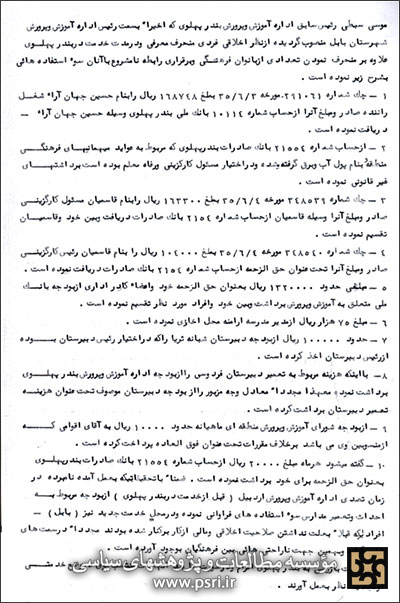 موسی سیطی رئیس سابق اداره آموزش وپرورش بندر پهلوی که اخیراً بسمت رئیس اداره آموزش وپرورش
شهرستان بابل منصوب گردیده ازنظر اخلاقی فردی منحرف معرفی ودرمدت خدمت دربندر پهلوی
علاوه بر منحرف نمودن تعدادی ازبانوان فرهنگی وبرقراری رابطه نامشروع باآنان سوء استفاده هائی
بشرح زیر نموده است .
۱ – چك شماره ۲۹۱۰۶۱ مورخه ۳۵/۶/۳ بمبلغ ۱۶۸۷۴۸ ریال رابنام حسین جهان آراء شغل
راننده صادر ومبلغ آنرا ازحساب شماره ۱۰۱۱۴ بانك ملی بندر پهلوی وسیله حسین جهان آراء –
دریافت نموده است .
۲ – ازحساب شماره ۲۱۵۵۴ بانك صادرات بندر پهلوی که مربوط به عواید میهمانیهای فرهنگی
منطقه بنام پول آب وبرق گرفته وشده ودراختیار مسئول کارگزینی ورفاه معلم بوده است برداشتهای
غیر قانونی نموده است .
۳ – چك شماره ۳۴۸۵۳۹ مورخه ۳۵/۶/۴ بمبلغ ۱۶۳۳۰۰ ریال رابنام قاسمیان مسئول کارگزینی
صادر ومبلغ آنرا وسیله قاسمیان ازحساب شماره ۲۱۵۴ بانك صادرات دریافت وبین خود وقاسمیان
تقسیم نموده است .
۴ – چك شماره ۳۴۸۵۴۰ مورخه ۳۵/۶/۴ بمبلغ ۱۰۴۰۰۰ ریال را بنام قاسمیان رئیس کارگزینی
صادر ومبلغ آنرا تحت عنوان حق الزحمه ازحساب شماره ۲۱۵۴ بانك صادرات دریافت نموده است .
۵ – مبلغی حدود ۱۳۲۰۰۰۰ ریال بعنوان حق الزحمه خود واعضاء کادر اداری ازبودجه بانك
ملی متعلق به آموزش وپرورش برداشت وبین خود وافراد مورد نظر تقسیم نموده است .
۶ – مبلغ ۷۵ هزار ریال ازمدیر مدرسه ارامنه محل اخاذی نموده است .
۷ – حدود ۱۰۰۰۰۰ ریال ازبودجه دبیرستان شبانه ثریا راکه دراختیار رئیس دبیرستان بوده
ازرئیس دبیرستان اخذ کرده است .
۸ – بااینکه هزینه مربوط به تعمیر دبیرستان فردوسی راازبودجه اداره آموزش وپرورش بندر پهلوی
برداشت نموده معهذا مجدداً معادل وجه مزبور راازبودجه دبیرستان موصوف تحت عنوان هزینه
تعمیر دبیرستان برداشت کرده است .
۹ – ازبودجه شورای آموزش وپرورش منطقه ای ماهیانه حدود ۱۰۰۰۰ ریال به آقای اقوامی که
ازمنسوبین وی می باشد برخلاف مقررات تحت عنوان فوق العاده پرداخت کرده است .
۱۰ – گفته میشود هرماه مبلغ ۲۰۰۰۰ ریال ازحساب شماره ۲۱۵۵۴ بانك صادرات بندر پهلوی
بعنوان حق الزحمه برای خود برداشت نموده است . ضمناً باتحقیقاتیکه بعمل آمده نامبرده در
زمان تصدی اداره آموزش وپرورش اردبیل ( قبل ازخدمت دربندر پهلوی ) ازبودجه مربوط به
احداث وتعمیر مدارس سوء استفاده های فراوانی نموده ودرمحل خدمت جدید نیز ( بابل ) –
افرادیکه قبلاً بعلت نداشتن صلاحیت اخلاقی ومالی ازکار برکنار شده بودند مجدداً درسمت های
جهت ناراحتی هائی بین فرهنگیان بوجود آورده است .
موسسه مطالعات و پژوهشهای سیاسی
www.psri.ir
بعمل آورند .